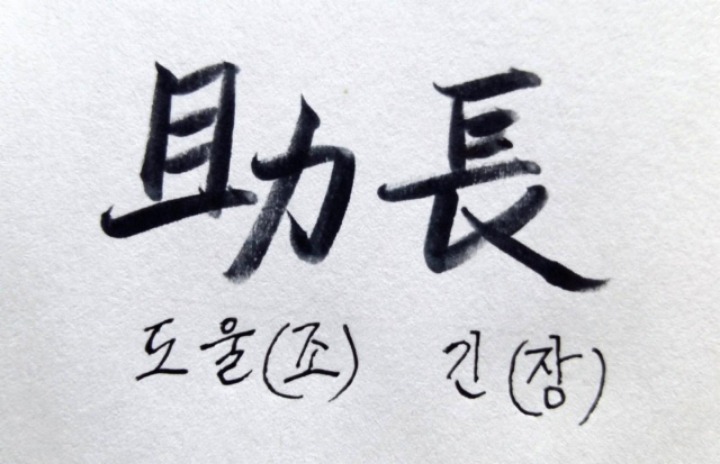 助長
도울(조) 긴(장)